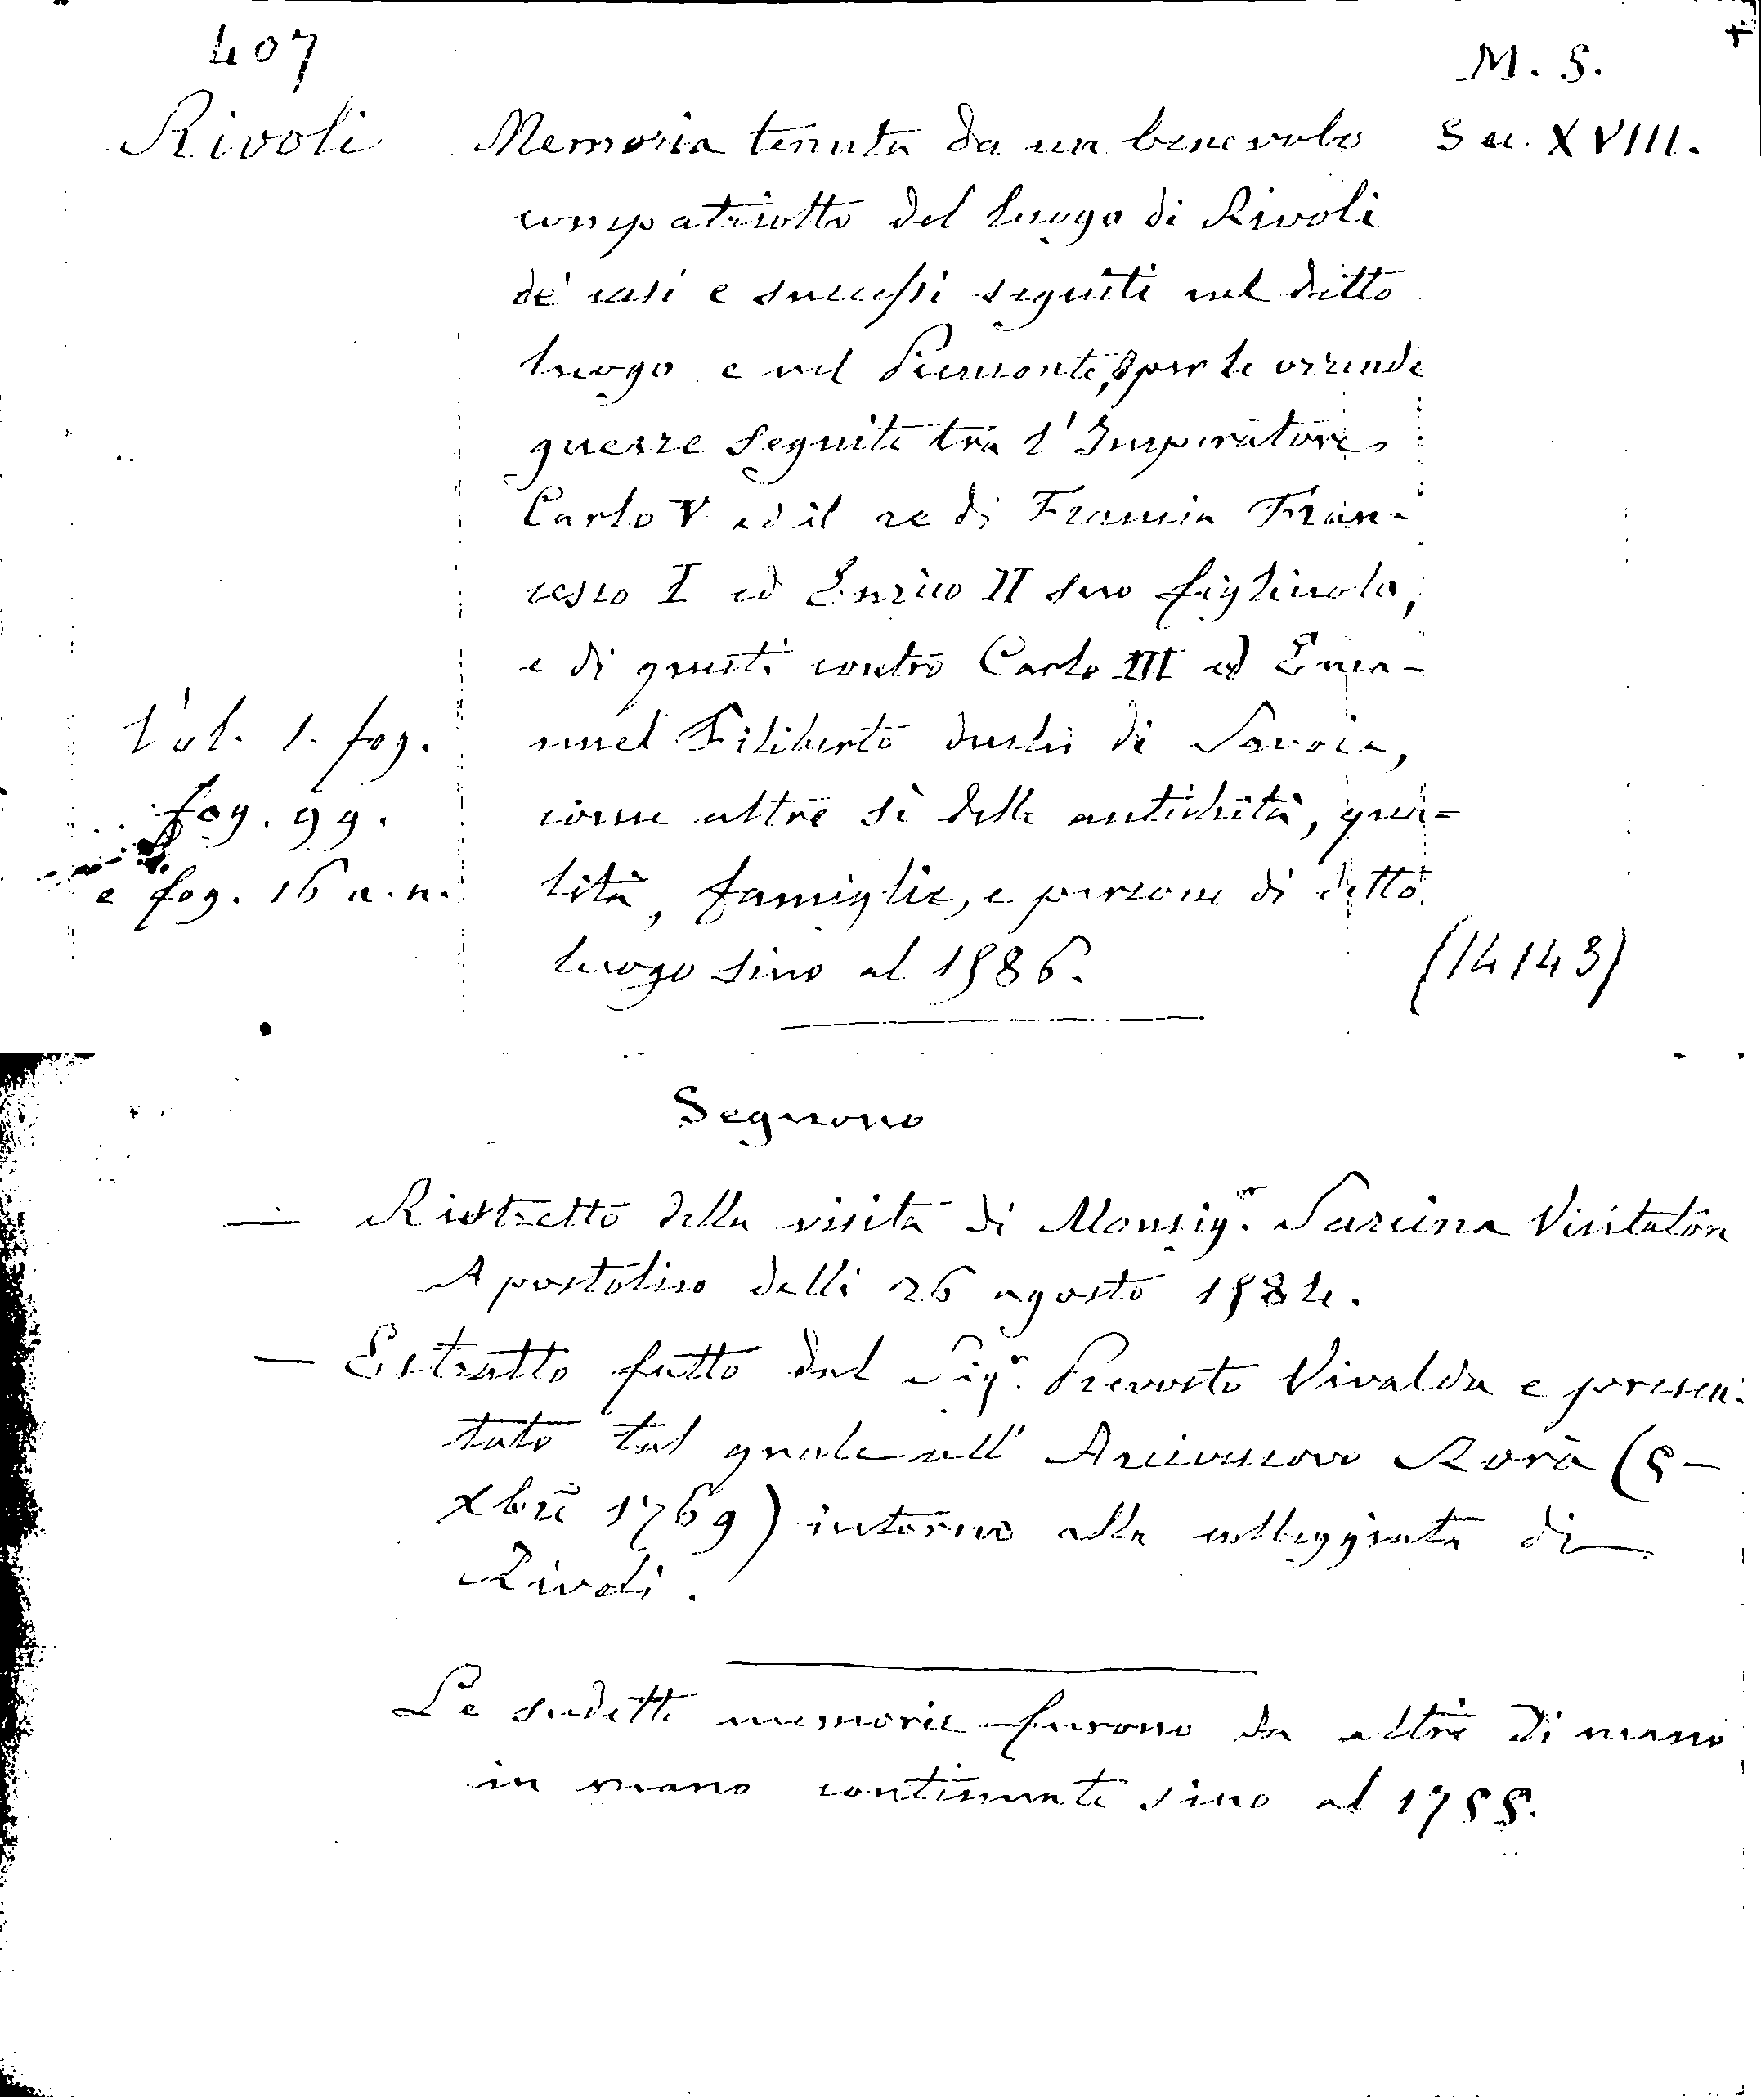 407
M. S.
Rivoli Memoria tenuta da un benevolo Sec. XVIII.
compatriotto del luogo di Rivoli
de' casi e successi seguiti nel ditto
luogo e nel Piemonte, per le orrende
guerre seguite tra l'Imperatore
Carlo V ed il re di Francia Fran-
cesco I ed Enrico II suo figliuolo,
e di questi contro Carlo III ed Ema-
Vol. 1. fog. nuel Filiberto duchi di Savoia,
fog. 99. come altre sì delle antichità, qua=
e fog. 16 a. n. lità, famiglie, e persone di detto
luogo sino al 1586. (14143)
Seguono
— Ristretto della visita di Monsig.r Sarcina Visitator
Apostolico delli 26 agosto 1584.
— Estratto fatto dal Sig.r Prevosto Vivalda e presen-
tato tal quale all' Arcivescovo Rorà (5-
Xbre 1769) intorno alla colleggiata di
Rivoli.
Le sudette memorie furono da altri di mano
in mano continuate sino al 1755.